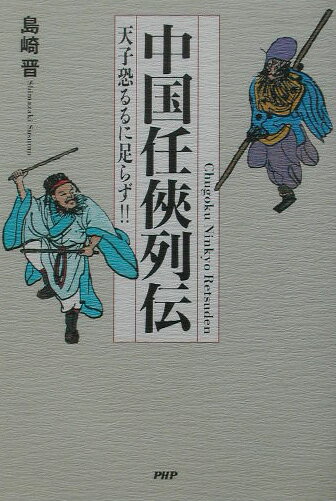 島崎 晋
Shimazaki Susumu
中国任俠列伝
Chugoku Ninkyo Retsuden
天子恐るるに足らず!!
PHP